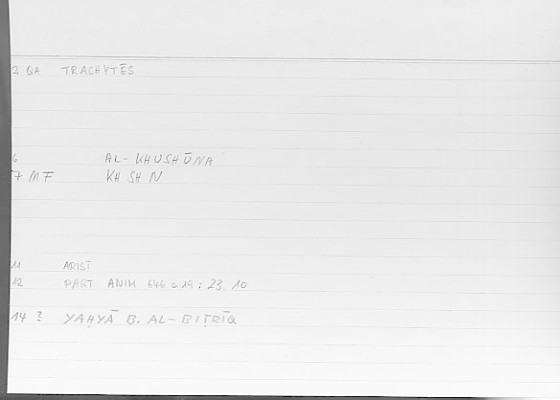 2 QA TRACHYTĒS
6 AL-KHUSHŪNA
7 MF KH SH N
11 ARIST
12 PART ANIM 646 a 19 : 23. 10
14 ? YAḤYĀ B. AL-BIṬRĪQ